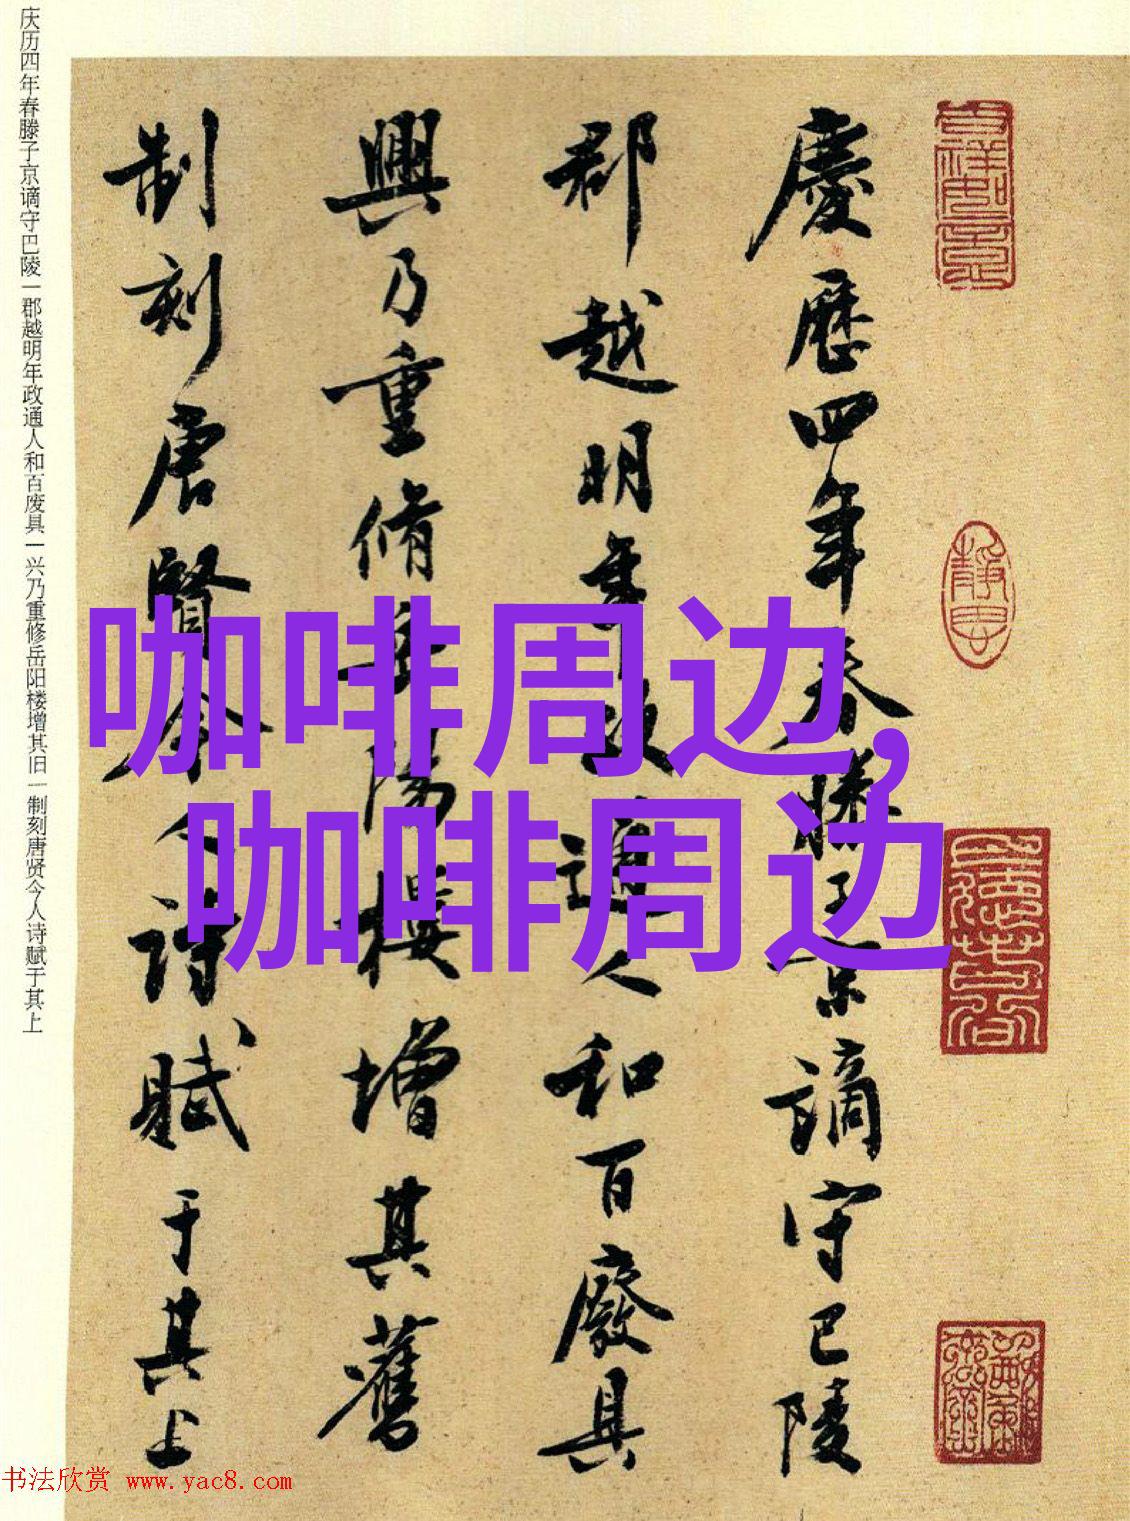 庆历四年春滕子京谪守巴陵一郡越明年政通人和百废具一兴乃重修岳阳楼增其旧一制刻唐贤今人诗赋于其上
慶歷四年春滕子京謫守巴陵
郡越明年政通人和百廢具
興乃重脩岳陽樓增其舊
制刻唐賢今人詩賦于其上
咖啡周边,
咖啡周边
书法欣赏 www.yac8.com